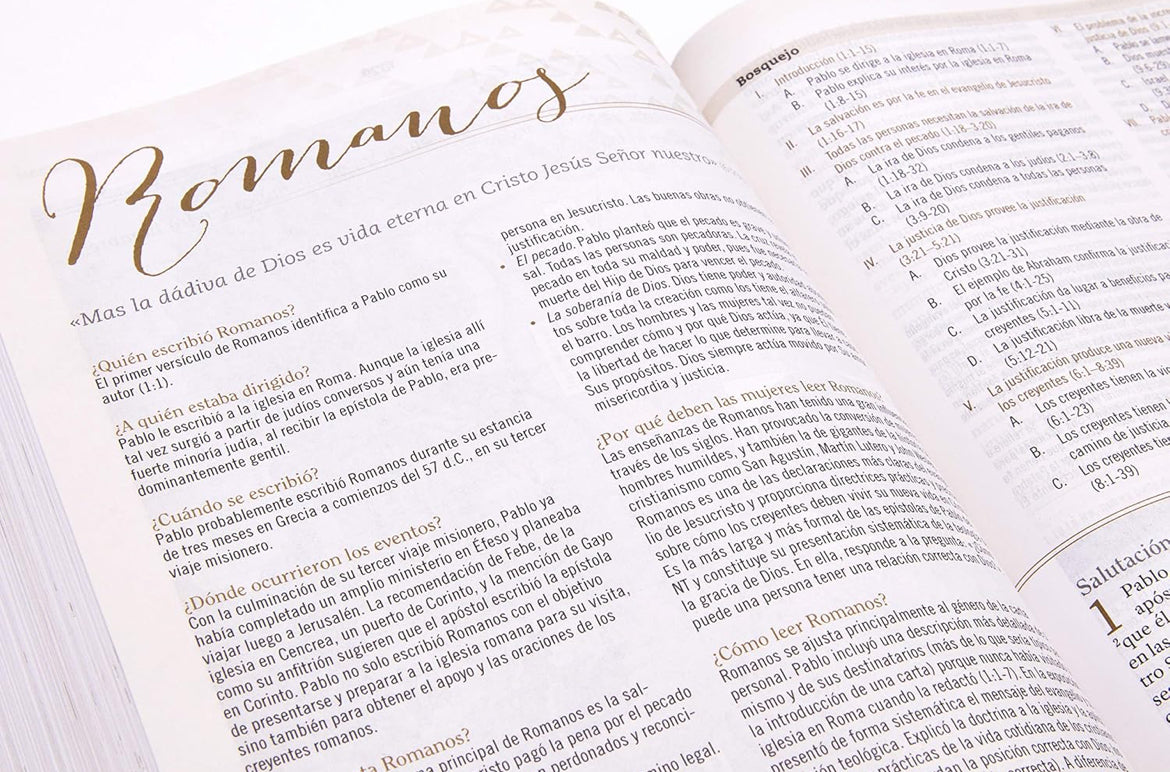 Romanos
«Mas la dádiva de Dios es vida eterna en Cristo Jesús Señor nuestro»
¿Quién escribió Romanos?
El primer versículo de Romanos identifica a Pablo como su
autor (1.1).
¿A quién estaba dirigido?
Pablo le escribió a la iglesia en Roma. Aunque la iglesia allí
tal vez surgió a partir de judíos conversos y aún tenía una
fuerte minoría judía, al recibir la epístola de Pablo, era pre-
dominantemente gentil.
¿Cuándo se escribió?
Pablo probablemente escribió Romanos durante su estancia
de tres meses en Grecia a comienzos del 57 d.C., en su tercer
viaje misionero.
¿Dónde ocurrieron los eventos?
Con la culminación de su tercer viaje misionero, Pablo ya
había completado un amplio ministerio en Éfeso y planeaba
viajar luego a Jerusalén. La recomendación de Febe, de la
iglesia en Cencrea, un puerto de Corinto, y la mención de Gayo
como su anfitrión sugieren que el apóstol escribió la epístola
en Corinto. Pablo no solo escribió Romanos con el objetivo
de presentarse y preparar a la iglesia romana para su visita,
sino también para obtener el apoyo y las oraciones de los
creyentes romanos.
ta Romanos?
principal de Romanos es la sal-
Cristo pagó la pena por el pecado
perdonados y reconci-
mino legal.
persona en Jesucristo. Las buenas obras no
justificación.
• El pecado. Pablo planteó que el pecado es
sal. Todas las personas son pecadoras. La cruz
pecado en toda su maldad y poder, pues fue
muerte del Hijo de Dios para vencer el pecado.
• La soberanía de Dios. Dios tiene poder y
tos sobre toda la creación como los tiene el
el barro. Los hombres y las mujeres tal vez no
comprender cómo y por qué Dios actúa, ya que
la libertad de hacer lo que determine para llevar
Sus propósitos. Dios siempre actúa movido por Su
misericordia y justicia.
¿Por qué deben las mujeres leer Romanos?
Las enseñanzas de Romanos han tenido una gran
través de los siglos. Han provocado la conversión de
hombres humildes, y también la de gigantes de la
cristianismo como San Agustín, Martín Lutero y
Romanos es una de las declaraciones más claras del
lio de Jesucristo y proporciona directrices prácticas
sobre cómo los creyentes deben vivir su nueva vida en
Es la más larga y más formal de las epístolas de Pablo
NT y constituye su presentación sistemática de la
la gracia de Dios. En ella, responde a la pregunta:
puede una persona tener una relación correcta con
¿Cómo leer Romanos?
Romanos se ajusta principalmente al género de la carta
personal. Pablo incluyó una descripción más
mismo y de sus destinatarios (más de lo que sería
la introducción de una carta) porque nunca había
iglesia en Roma cuando la redactó (1.1-7). En su
presentó de forma sistemática el mensaje del
ción teológica. Explicó la doctrina a la iglesia
prácticas de la vida cotidiana de los
dan la posición correcta con
Bosquejo
I. Introducción (1.1-15)
A. Pablo se dirige a la iglesia en Roma (1.1-7)
B. Pablo explica su interés por la iglesia en Roma
(1.8-15)
II. La salvación es por la fe en el evangelio de Jesucristo
(1.16-17)
III. Todas las personas necesitan la salvación de la ira de
Dios contra el pecado (1.18-3.20)
A. La ira de Dios condena a los gentiles paganos
(1.18-32)
B. La ira de Dios condena a los judíos (2.1-3.8)
C. La ira de Dios condena a todas las personas
(3.9-20)
IV. La justicia de Dios provee la justificación
(3.21-5.21)
A. Dios provee la justificación mediante la obra de
Cristo (3.21-31)
B. El ejemplo de Abraham confirma la
por la fe (4.1-25)
C. La justificación da lugar a beneficios
creyentes (5.1-11)
D. La justificación libra de la muerte
(5.12-21)
V. La justificación produce una nueva
los creyentes (6.1-8.39)
A. Los creyentes tienen la
(6.1-23)
B. Los creyentes tienen
camino de
C. Los creyentes
(8.1-39)
El problema de la
justicia de Dios
A. Pablo se
B. Dios
Salutación
1 Pablo
2 que él
en las